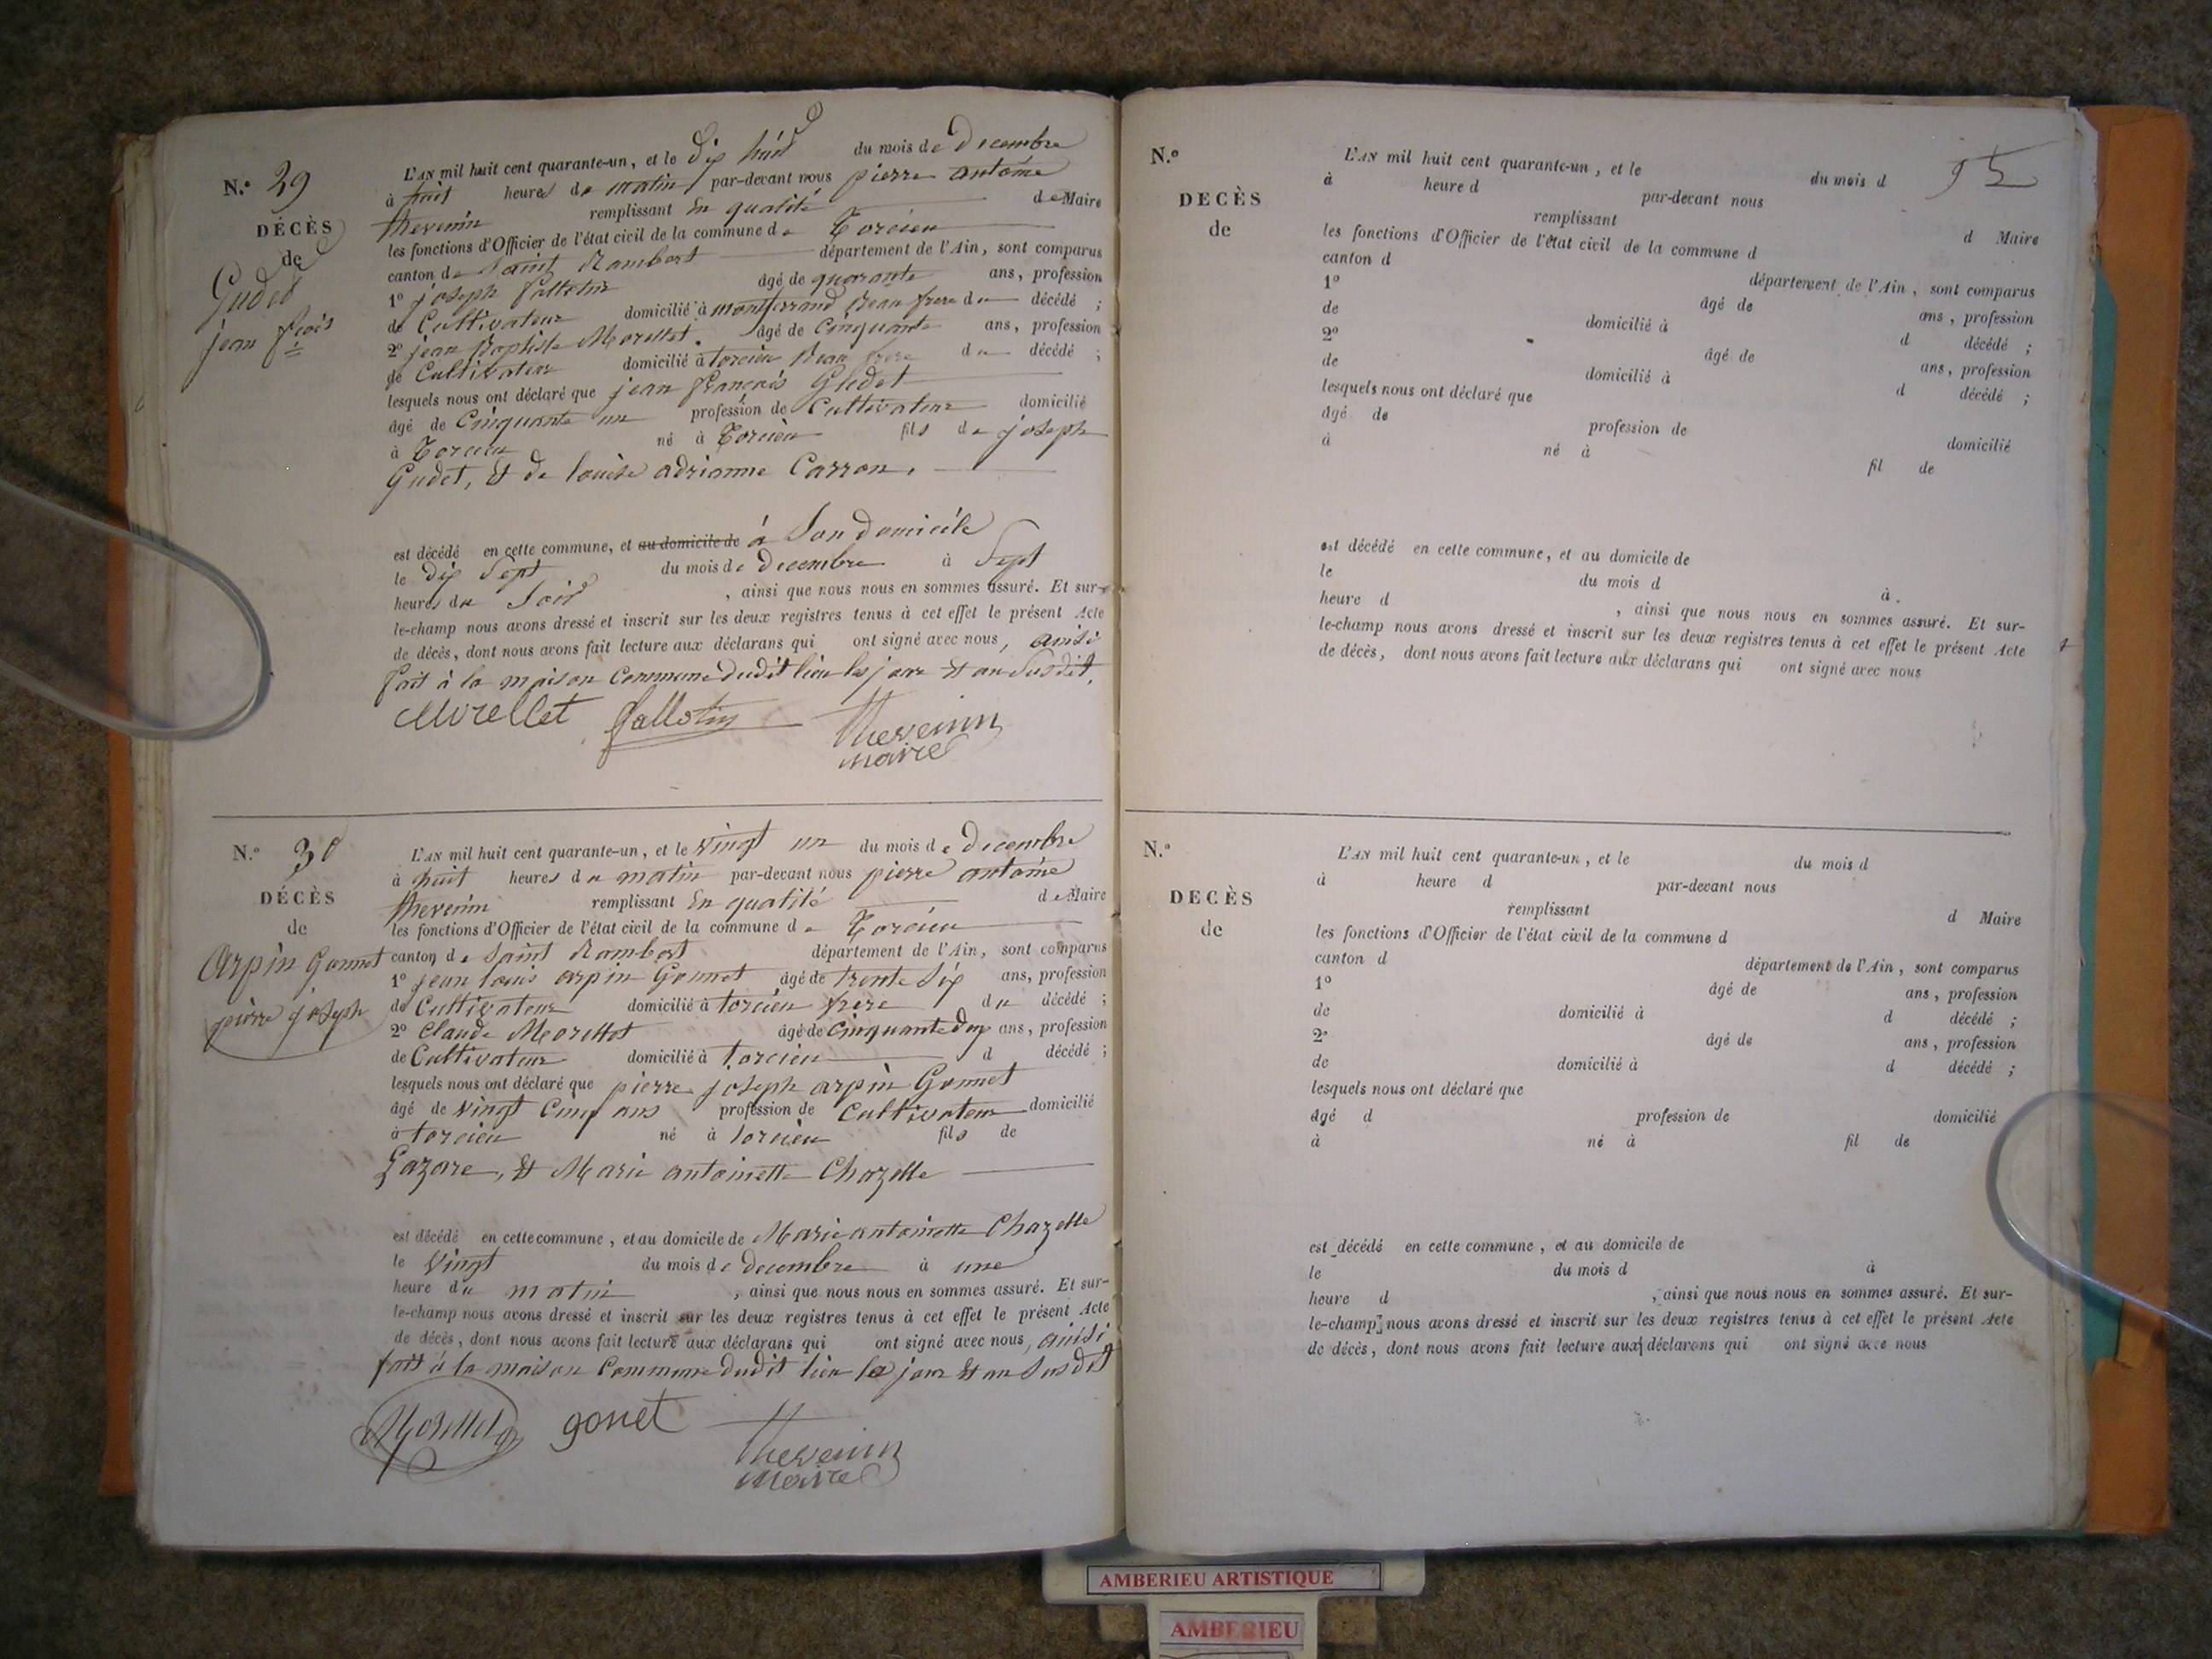 N.° 29
DÉCÈS
de
Gudet
jean frois
L'AN mil huit cent quarante-un, et le dix huit du mois de Decembre
à huit heures du matin par-devant nous pierre antoine
thevenin remplissant En qualité de Maire
les fonctions d'Officier de l'état civil de la commune de Torcieu
canton de Saint Rambert département de l'Ain, sont comparus
1° joseph fallotin âgé de quarante ans, profession
de Cultivateur domicilié à montferrand Beau frere du décédé ;
2° jean Baptiste Morellet. âgé de Cinquante ans, profession
de Cultivateur domicilié à torcieu Beau frere du décédé ;
lesquels nous ont déclaré que jean françois Gudet
âgé de Cinquante un profession de Cultivateur domicilié
à Torcieu né à Torcieu fils de joseph
Gudet, & de louise adrianne Carron.
est décédé en cette commune, et au domicile de à Son Domicile
le dix Sept du mois de Decembre à Sept
heures du Soir , ainsi que nous nous en sommes assuré. Et sur-
le-champ nous avons dressé et inscrit sur les deux registres tenus à cet effet le présent Acte
de décès, dont nous avons fait lecture aux déclarans qui ont signé avec nous, ainsi
fait à la maison Commune dudit lieu les jour & an Susdit.
Morellet fallotin Thevenin
maire
N.° 30
DÉCÈS
de
Arpin Gonnet
pierre joseph
L'AN mil huit cent quarante-un, et le vingt un du mois de Decembre
à huit heures du matin par-devant nous pierre antoine
thevenin remplissant En qualité de Maire
les fonctions d'Officier de l'état civil de la commune de Torcieu
canton de Saint Rambert département de l'Ain, sont comparus
1° jean louis arpin Gonnet âgé de trente Six ans, profession
de Cultivateur domicilié à torcieu frere du décédé ;
2° Claude Morettet âgé de Cinquante dux ans, profession
de Cultivateur domicilié à torcieu d décédé ;
lesquels nous ont déclaré que pierre joseph arpin Gonnet
âgé de vingt Cinq ans profession de Cultivateur domicilié
à torcieu né à torcieu fils de
Lazare, & Marie antoinette Chazelle
est décédé en cette commune, et au domicile de Marie antoinette Chazelle
le vingt du mois de decembre à une
heure du matin , ainsi que nous nous en sommes assuré. Et sur-
le-champ nous avons dressé et inscrit sur les deux registres tenus à cet effet le présent Acte
de décès, dont nous avons fait lecture aux déclarans qui ont signé avec nous, ainsi
fait à la maison Commune dudit lieu les jour & an Susdit
Morettet gonet Thevenin
Maire
95
N.°
DECÈS
de
L'AN mil huit cent quarante-un, et le du mois d
à heure d par-devant nous
remplissant d Maire
les fonctions d'Officier de l'état civil de la commune d
canton d département de l'Ain, sont comparus
1° âgé de ans, profession
de domicilié à d décédé ;
2° âgé de ans, profession
de domicilié à d décédé ;
lesquels nous ont déclaré que
âgé de profession de domicilié
à né à fil de
est décédé en cette commune, et au domicile de
le du mois d à
heure d , ainsi que nous nous en sommes assuré. Et sur-
le-champ nous avons dressé et inscrit sur les deux registres tenus à cet effet le présent Acte
de décès, dont nous avons fait lecture aux déclarans qui ont signé avec nous
N.°
DECÈS
de
L'AN mil huit cent quarante-un, et le du mois d
à heure d par-devant nous
remplissant d Maire
les fonctions d'Officier de l'état civil de la commune d
canton d département de l'Ain, sont comparus
1° âgé de ans, profession
de domicilié à d décédé ;
2° âgé de ans, profession
de domicilié à d décédé ;
lesquels nous ont déclaré que
âgé d profession de domicilié
à né à fil de
est décédé en cette commune, et au domicile de
le du mois d à
heure d , ainsi que nous nous en sommes assuré. Et sur-
le-champ nous avons dressé et inscrit sur les deux registres tenus à cet effet le présent Acte
de décès, dont nous avons fait lecture aux déclarans qui ont signé avec nous
AMBERIEU ARTISTIQUE
AMBERIEU